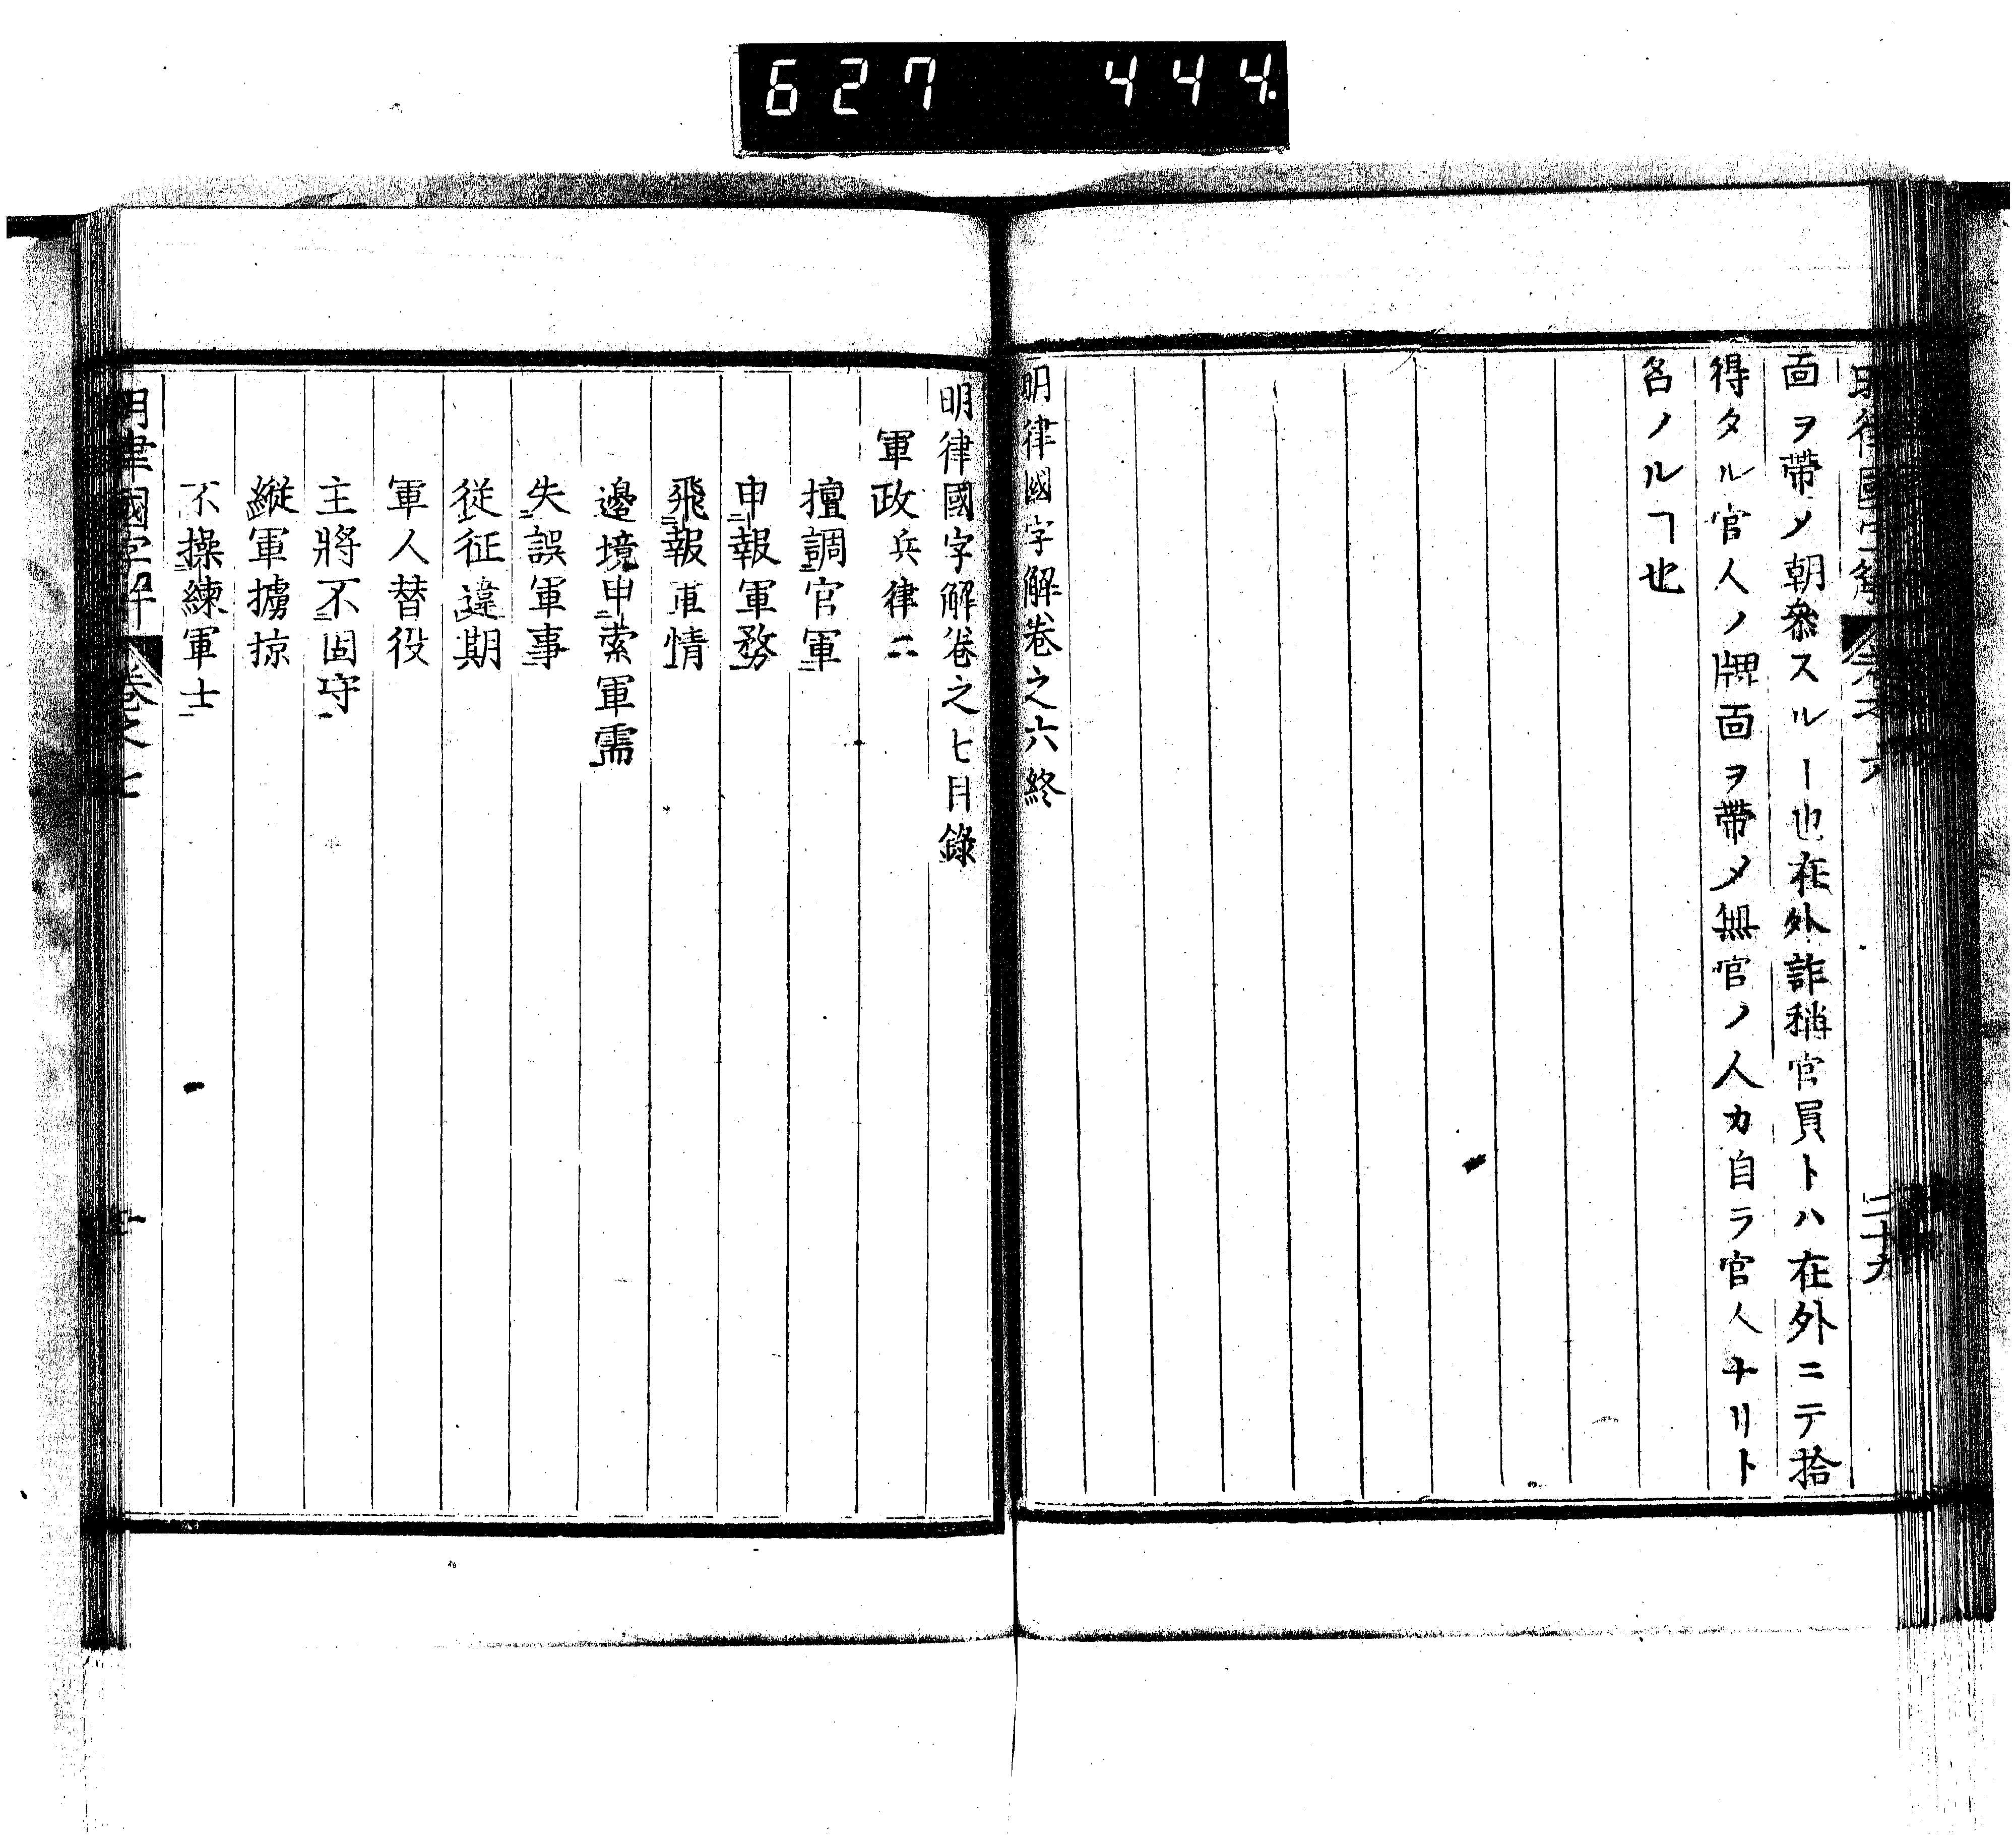 627 444
面ヲ帶〆朝叅スルー也在外詐稱官員トハ在外ニテ拾
得タル官人ノ牌面ヲ帶〆無官ノ人カ自ラ官人ナリト
名ノルヿ也
明律國字解卷之六終
明律國字解卷之七目錄
軍政 兵律二
擅調官軍
申報軍務
飛報軍情
邊境申索軍需
失誤軍事
従征違期
軍人替役
主將不固守
縱軍擄掠
不操練軍士
明律國字解 卷之七